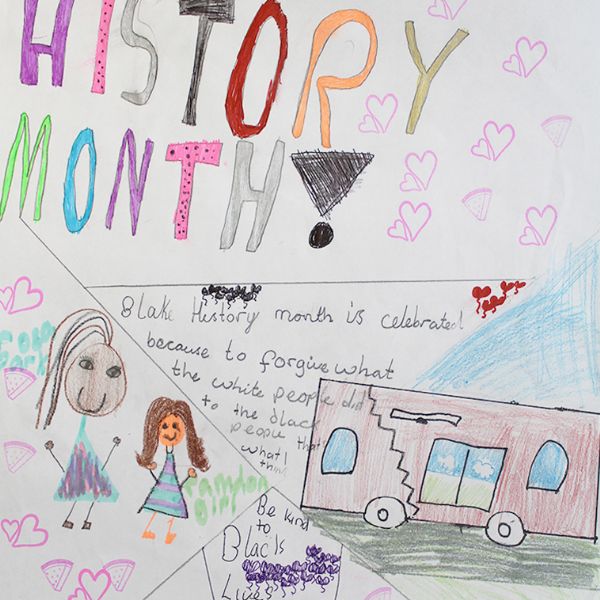 HISTORY
MONTH!
Blake History month is celebrated
because to forgive what
the white people did
to the black
people that
what I
think
random
girl
Be kind
to
Blacks
Lives